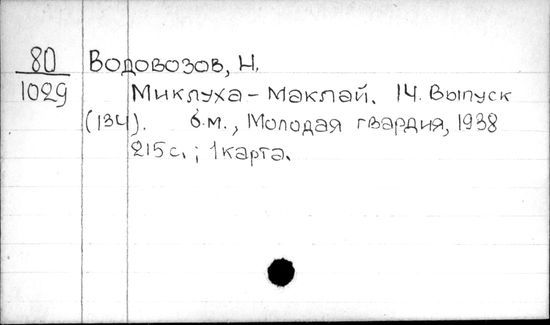 80 Водовозов, Н.
1029
Миклуха - Маклай. 14. Выпуск
(134). б.м., Молодая гвардия, 1938
215 с. ; 1 карта.